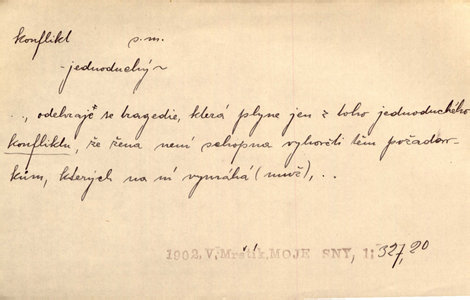 konflikt s.m.
-jednoduchý~
..., odehraje se tragedie, která plyne jen z toho jednoduchého
konfliktu, že žena není schopna vyhověti těm požadav-
kům, kterých na ní vymáhá (muž), ..
1902, V. Mrštík, MOJE SNY, 1: 327,20